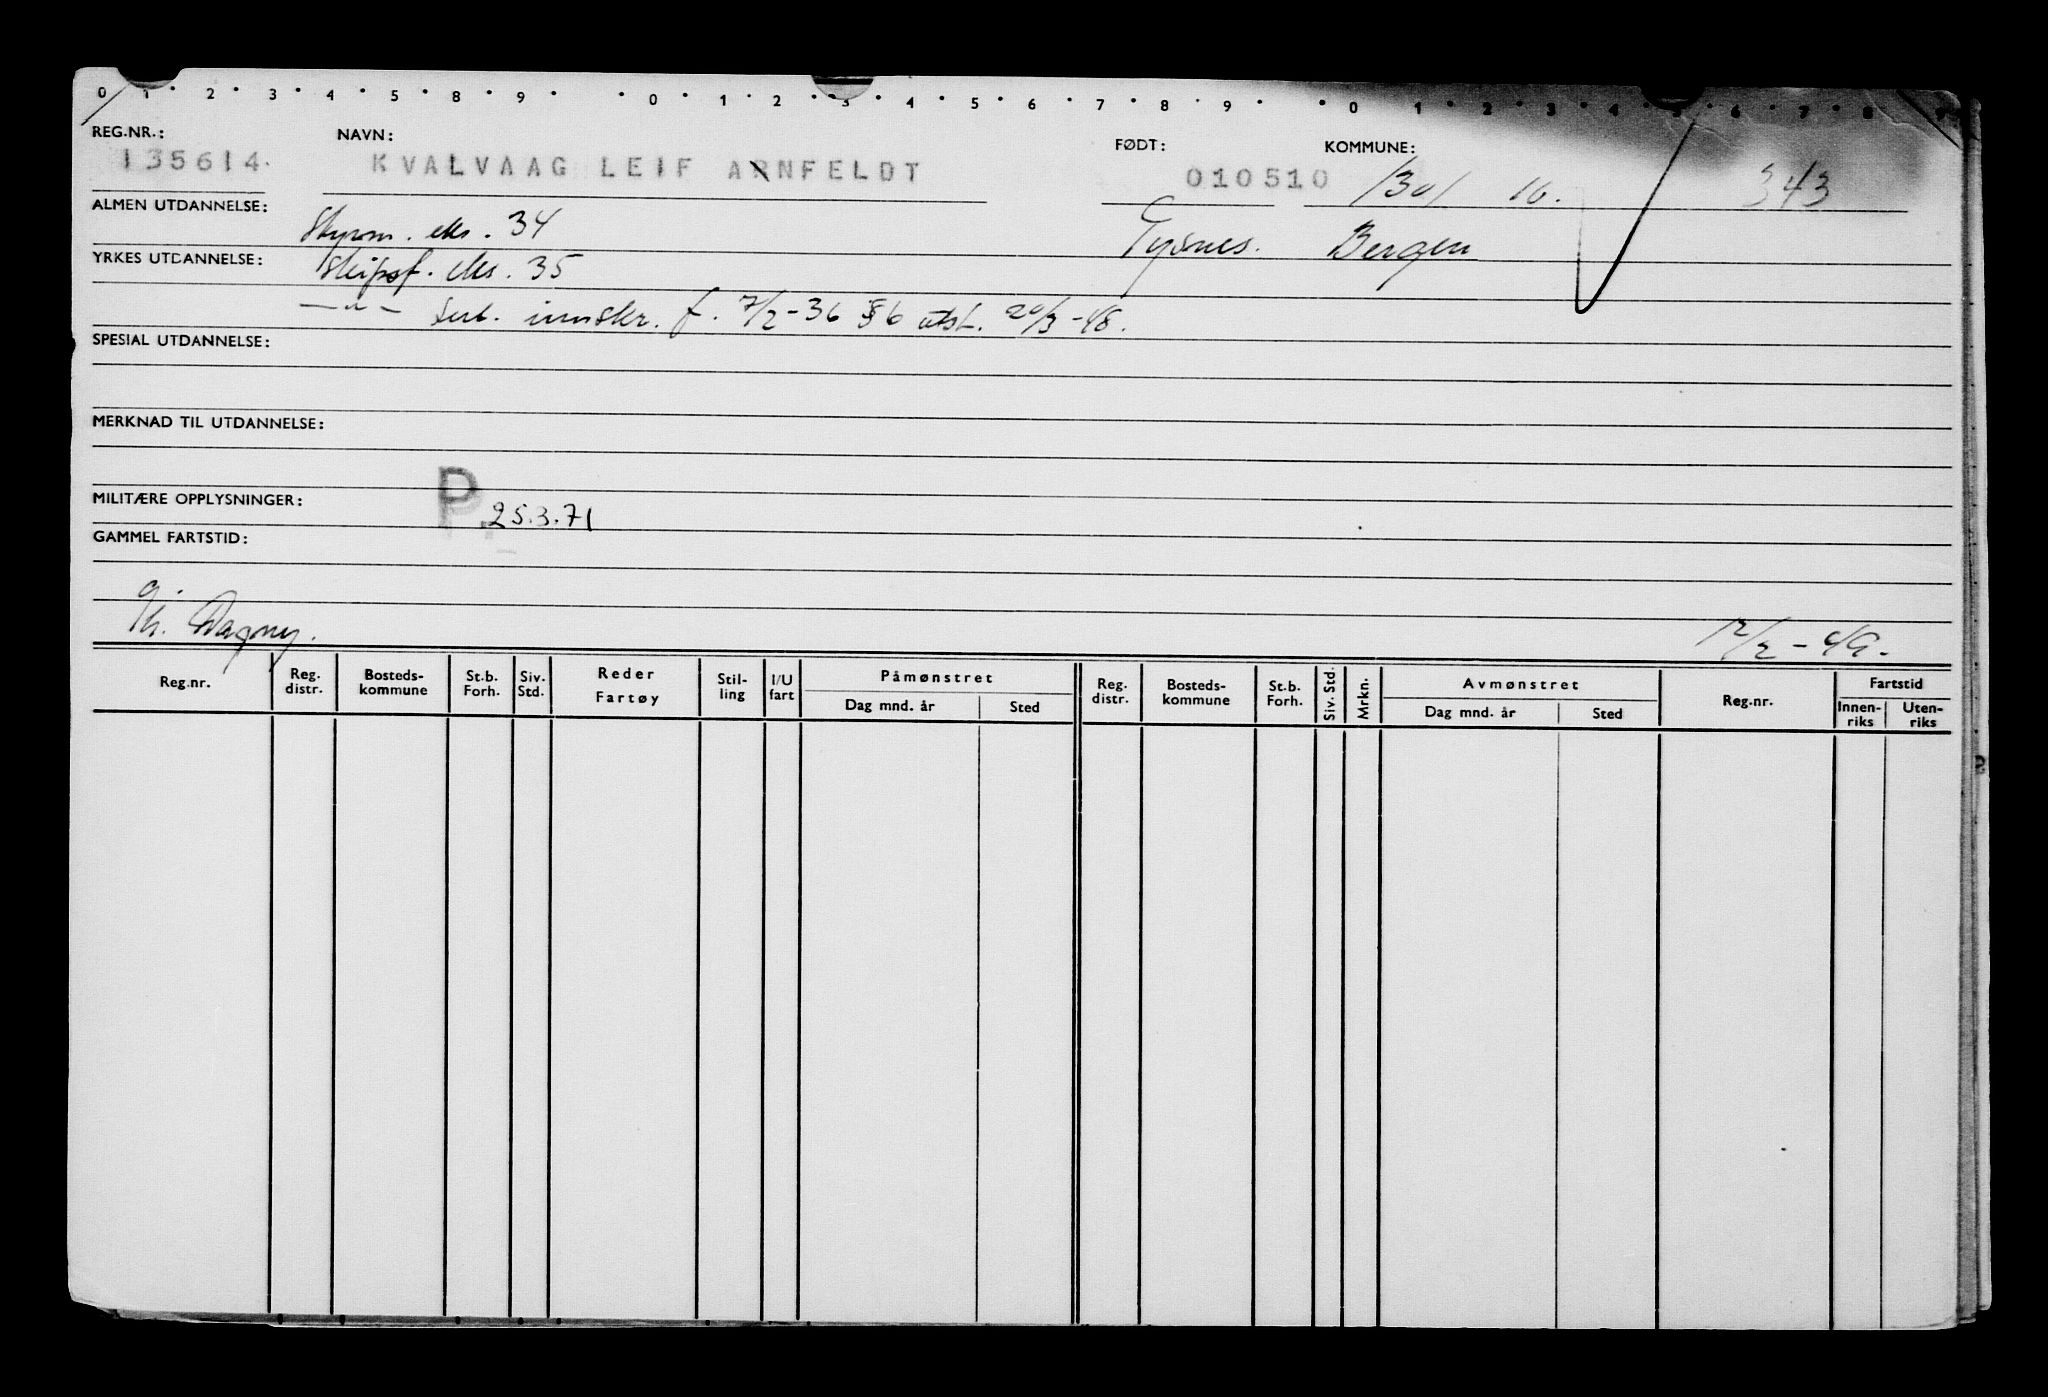 0 1 2 3 4 5 8 9 0 1 2 3 4 5 6 7 8 9 0 1 2 3 4 5 6 7 8 9
REG.NR.: NAVN: FØDT: KOMMUNE:
135614. KVALVAAG LEIF ARNFELDT 010510 1301 10. 343
ALMEN UTDANNELSE: Styrm. eks. 34 Tysnes. Bergen
YRKES UTDANNELSE: Skipsf. eks. 35
—"— sert. innskr. f. 7/2-36 §6 utst. 20/3-48.
SPESIAL UTDANNELSE:
MERKNAD TIL UTDANNELSE:
P.
MILITÆRE OPPLYSNINGER: 25.3.71
GAMMEL FARTSTID:
g.
h. Dagny. 12/2-49.
Reg.nr. Reg. distr. Bosteds-kommune St.b. Forh. Siv. Std. Reder Fartøy Stil-ling I/U fart Påmønstret Dag mnd. år Sted Reg. distr. Bosteds-kommune St.b. Forh. Siv. Std. Mrkn. Avmønstret Dag mnd. år Sted Reg.nr. Fartstid Innen-riks Uten-riks